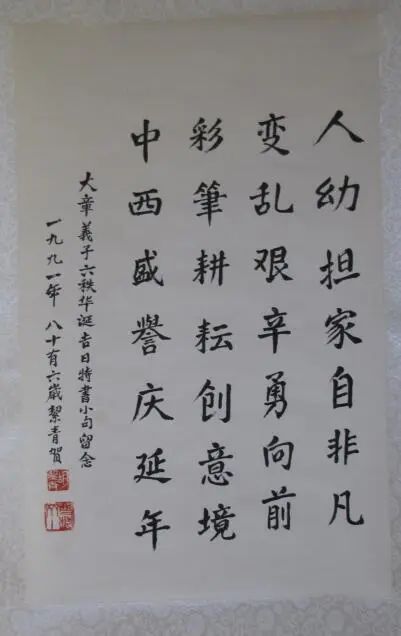 人幼担家自非凡
变乱艰辛勇向前
彩筆耕耘创意境
中西盛誉庆延年
大章義子六秩华诞吉日特書小句留念
一九九一年 八十有六歲絜青賀